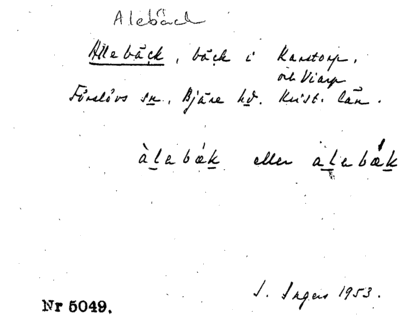 Alebäck
Allebäck, bäck i Karstorp,
och Viarp
Förslövs sn, Bjäre hd. Krist. län.
àlebǽk eller alebǽk
I. Ingers 1953.
Nr 5049.